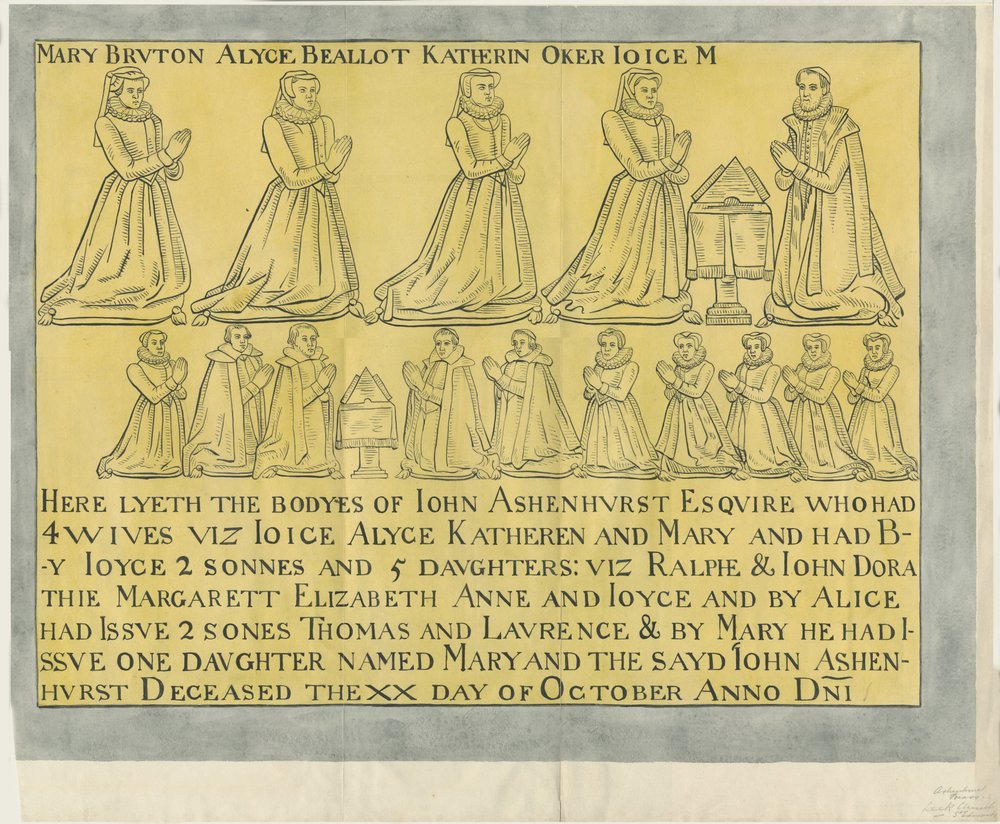 MARY BRVTON ALYCE BEALLOT KATHERIN OKER IOICE M
HERE LYETH THE BODYES OF IOHN ASHENHVRST ESQVIRE WHO HAD
4 WIVES VIZ IOICE ALYCE KATHEREN AND MARY AND HAD B-
-Y IOYCE 2 SONNES AND 5 DAVGHTERS: VIZ RALPHE & IOHN DORA
THIE MARGARETT ELIZABETH ANNE AND IOYCE AND BY ALICE
HAD ISSVE 2 SONES THOMAS AND LAVRENCE & BY MARY HE HAD I-
SSVE ONE DAVGHTER NAMED MARY AND THE SAYD IOHN ASHEN-
HVRST DECEASED THE XX DAY OF OCTOBER ANNO DN̄I
Ashenhurst
Brass
Leek Church